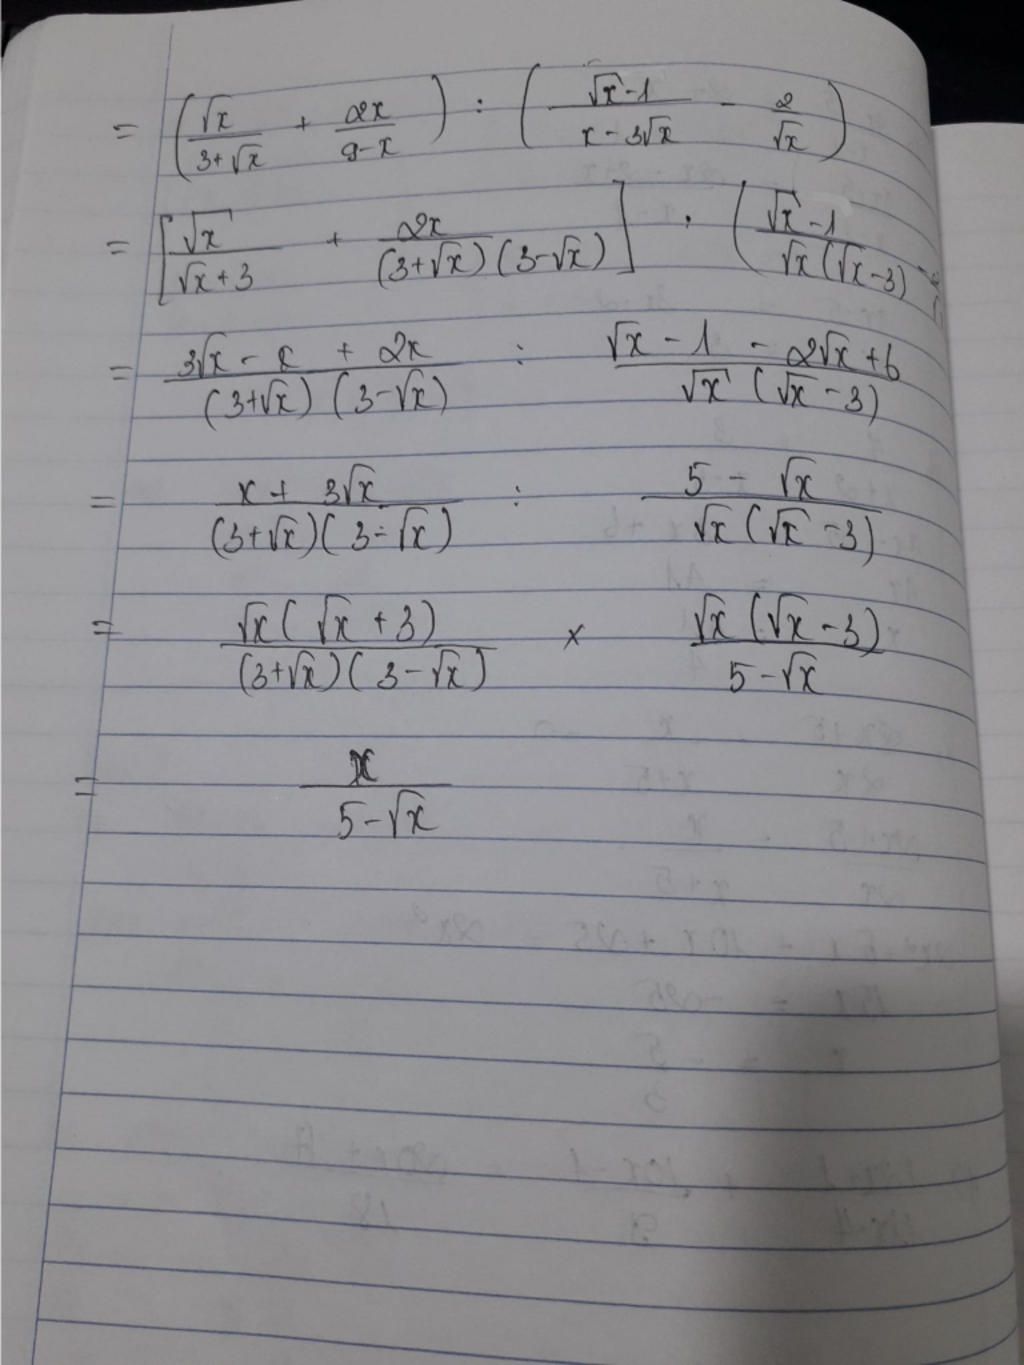 = ( √x / (3+√x) + 2x / (9-x) ) : ( (√x-1) / (x-3√x) - 2/√x )
= [ √x / (√x+3) + 2x / ((3+√x)(3-√x)) ] : ( (√x-1) / (√x(√x-3)) -
= (3√x - x + 2x) / ((3+√x)(3-√x)) : (√x - 1 - 2√x + 6) / (√x(√x-3))
= (x + 3√x) / ((3+√x)(3-√x)) : (5 - √x) / (√x(√x-3))
= √x(√x+3) / ((3+√x)(3-√x)) × √x(√x-3) / (5-√x)
= x / (5-√x)